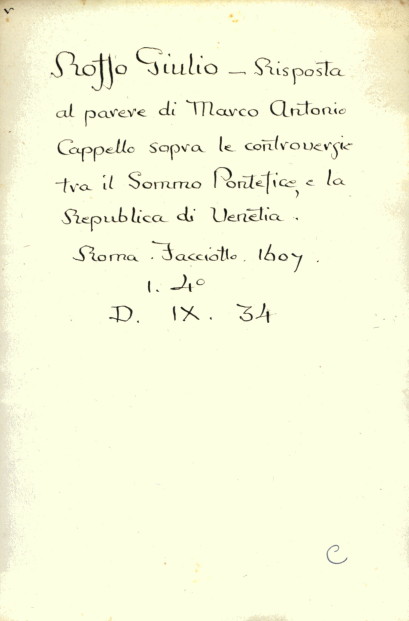 Roffo Giulio – Risposta
al parere di Marco Antonio
Cappello sopra le controversie
tra il Sommo Pontefice, e la
Republica di Venetia.
Roma. Facciotto. 1607.
1. 4°
D. IX. 34
C